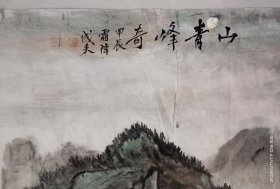 山青峰奇
甲辰
霜降
成夫